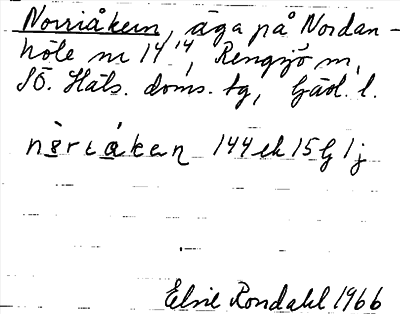 Norriåkern, äga på Nordan-
höle nr 14¹⁴, Rengsjö sn,
SÖ. Häls. doms. tg, Gävl. l.
144 ek 15 G 1 j
Elsie Rondahl 1966